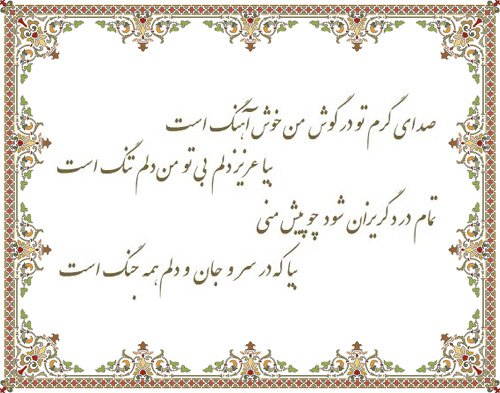 صدای گرم تو در گوش من خوش آهنگ است
بیا عزیز دلم بی تو من دلم تنگ است
تمام درد گریزان شود چو پیش منی
بیا که در سر و جان و دلم همه جنگ است